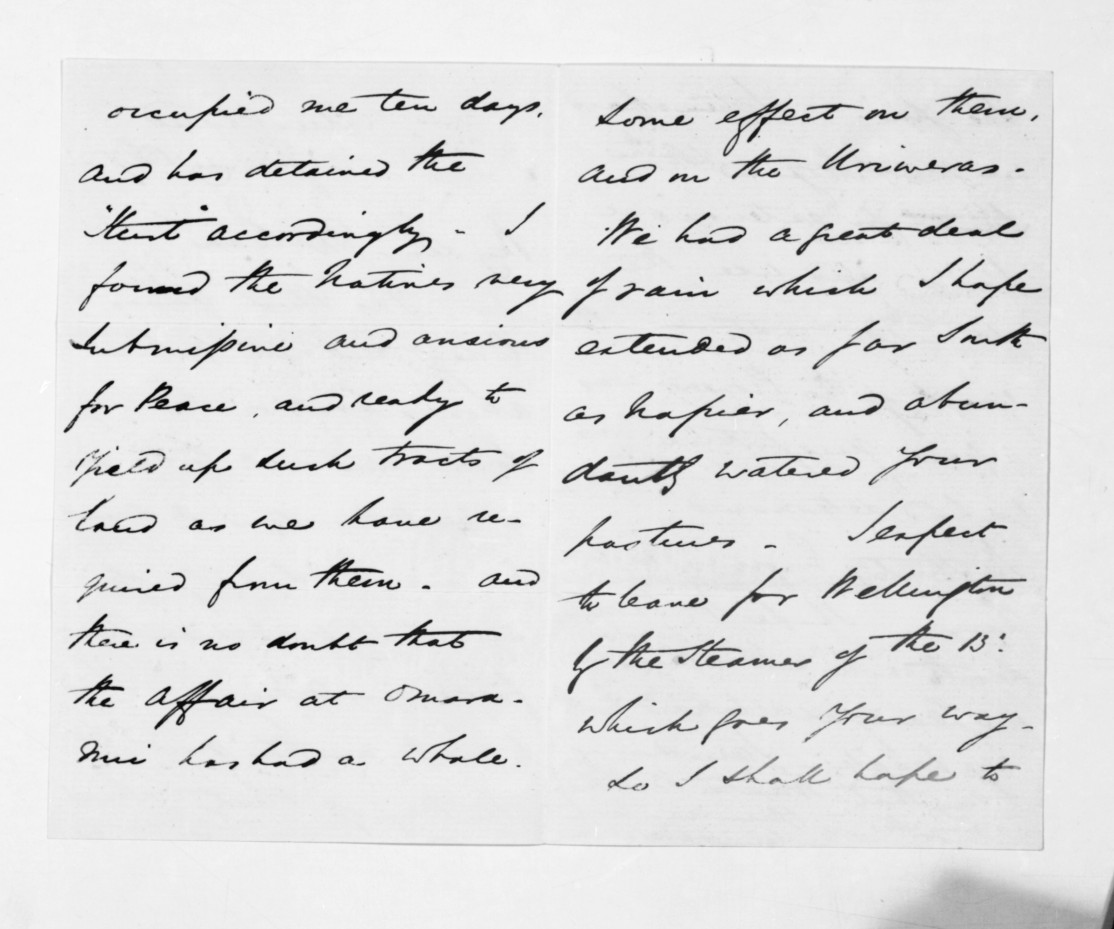 occupied me ten days.
and has detained the
"Hunt" accordingly - I
found the Natives very
submissive and anxious
for Peace, and ready to
yield up such tracts of
land as we have re-
quired from them - and
there is no doubt that
the affair at Omara-
nui has had a whole-
some effect on them,
and on the Uriweras -
We had a great deal
of rain which I hope
extended as far South
as Napier, and abun-
dantly watered your
pastures - I expect
to leave for Wellington
by the Steamer of the 13:
which goes your way -
so I shall hope to